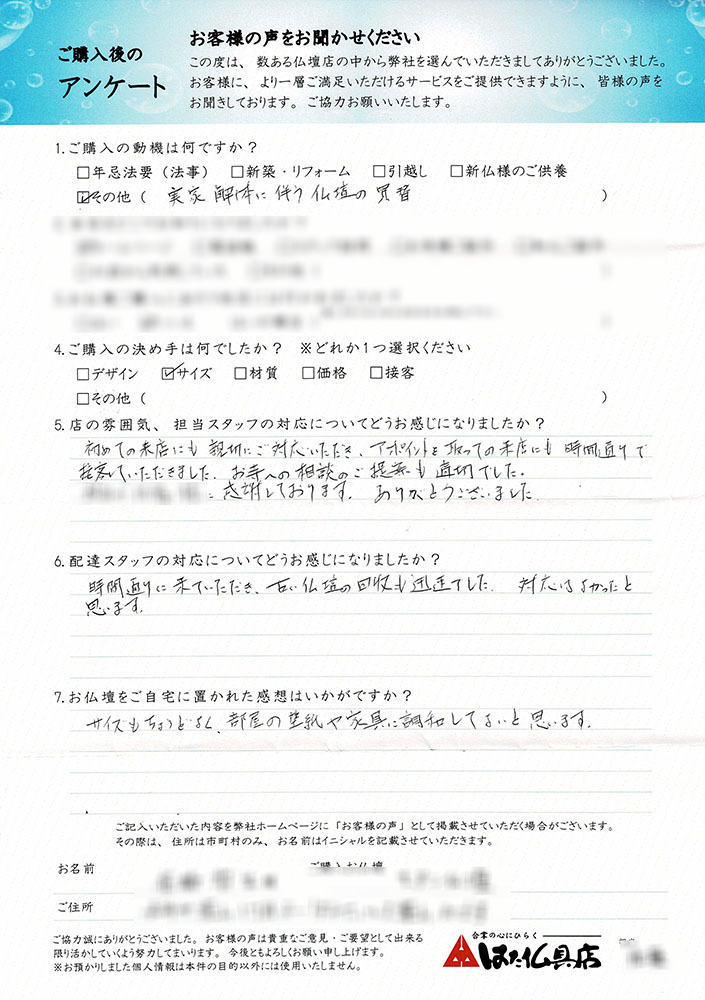 ご購入後の
アンケート
お客様の声をお聞かせください
この度は、数ある仏壇店の中から弊社を選んでいただきましてありがとうございました。
お客様に、より一層ご満足いただけるサービスをご提供できますように、皆様の声を
お聞きしております。ご協力お願いいたします。
1.ご購入の動機は何ですか?
□年忌法要(法事) □新築・リフォーム □引越し □新仏様のご供養
☑その他( 実家解体に伴う仏壇の買替 )
4.ご購入の決め手は何でしたか? ※どれか1つ選択ください
□デザイン ☑サイズ □材質 □価格 □接客
□その他( )
5.店の雰囲気、担当スタッフの対応についてどうお感じになりましたか?
初めての来店にも親切にご対応いただき、アポイントを取っての来店にも時間通りで
接客していただきました。お寺への相談のご提案も適切でした。
感謝しております。ありがとうございました。
6.配達スタッフの対応についてどうお感じになりましたか?
時間通りに来ていただき、古い仏壇の回収も迅速でした。対応はよかったと
思います。
7.お仏壇をご自宅に置かれた感想はいかがですか?
サイズもちょうどよく、部屋の壁紙や家具に調和してよいと思います。
ご記入いただいた内容を弊社ホームページに「お客様の声」として掲載させていただく場合がございます。
その際は、住所は市町村のみ、お名前はイニシャルを記載させていただきます。
お名前
ご購入お仏壇
ご住所
ご協力誠にありがとうございました。お客様の声は貴重なご意見・ご要望として出来る
限り活かしていくよう努力してまいります。今後ともよろしくお願い申し上げます。
※お預かりしました個人情報は本件の目的以外には使用いたしません。
合掌の心にひらく
はた仏具店